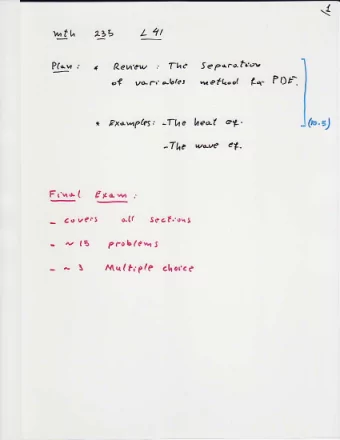 1
mth 235 L 41
Plan: * Review: The Separation
of variables method for PDE.
(10.5)
* Examples: - The heat eq.
- The wave eq.
Final Exam:
- covers all sections
- ~ 15 problems
- ~ 3 Multiple choice